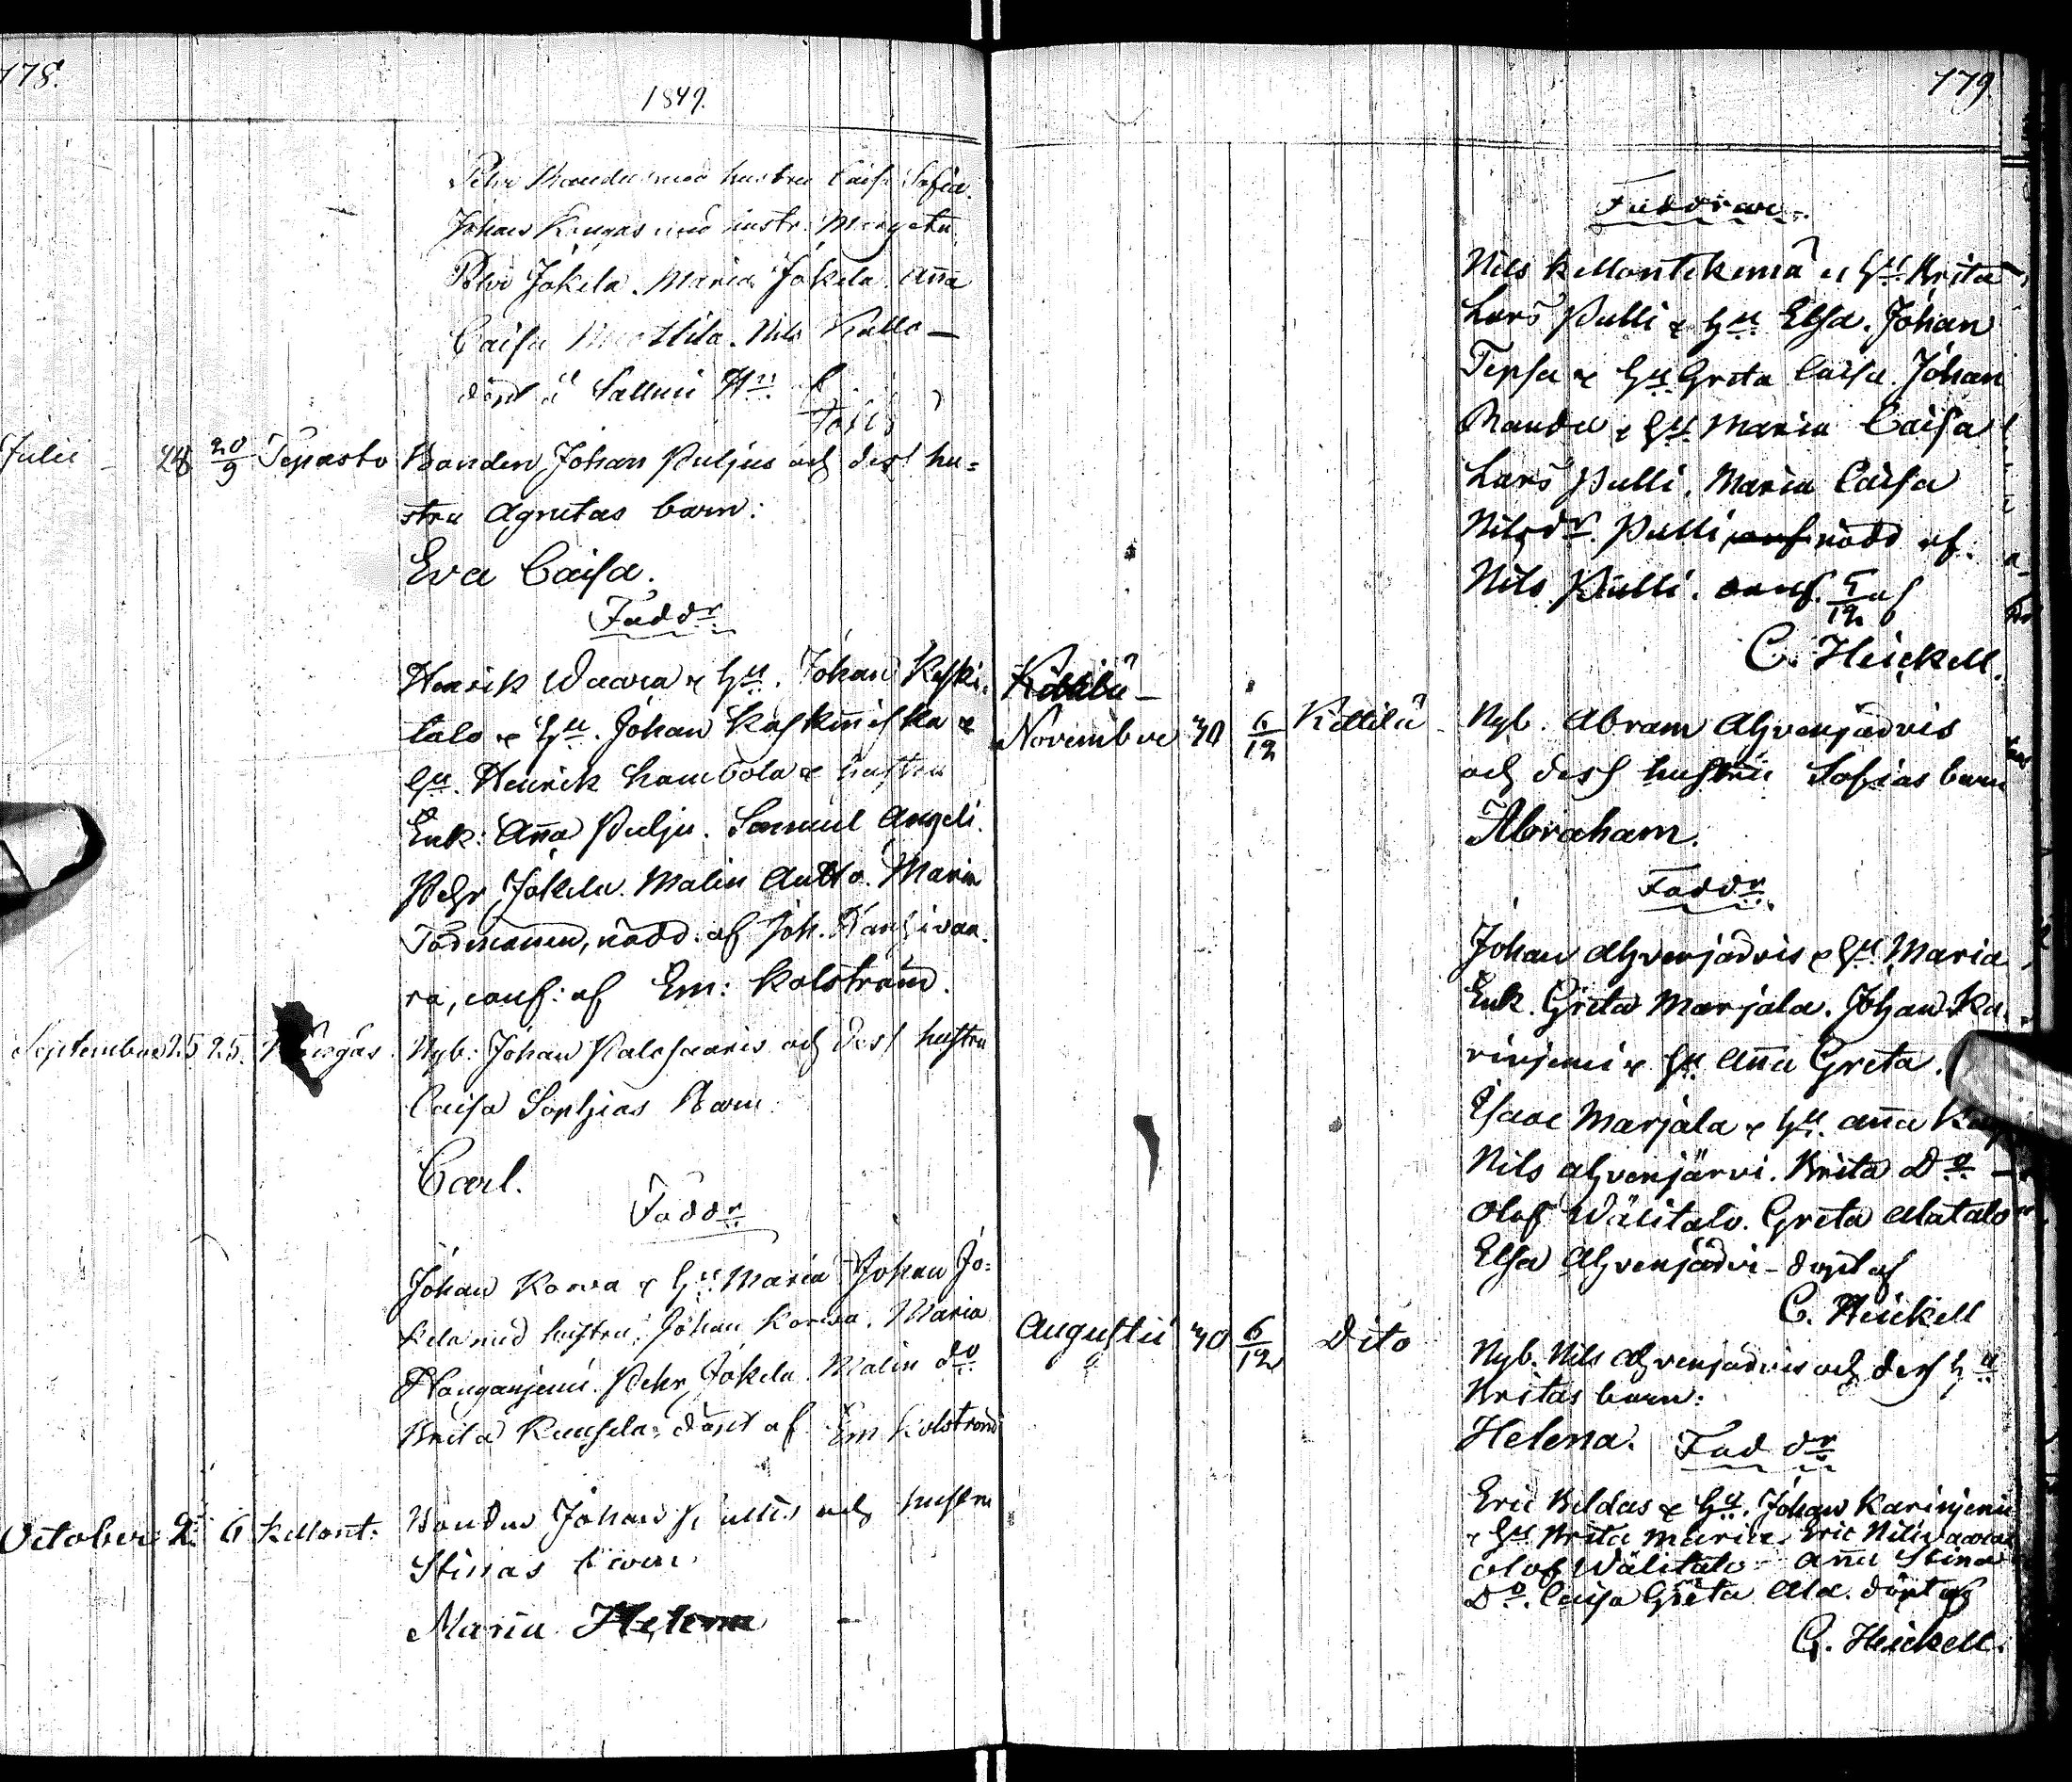 178.
1849.
med hustru Caisa Sofia.
Johan Kangas med hustr. Margeta.
Petr Jokela. Maria Jokela. Aña
Caisa Nils Kallo-
döpt af
Julii - 28 20/9 Tepasto Bonden Johan Puljus och dess hu=
stru Agnetas barn:
Eva Caisa.
Faddr
Henrik Waara & Hu. Johan Keski.
talo & Hu. Johan &
Hu. Henrik & hustru
Enk: Aña Pulju. Samuel Angeli.
Pehr Jokela. Malin Autto. Maria
Tormänen, nödd: af Joh.
ra, conf: af Em: Kolström.
September 25 25. Nyb: Johan och dess hustru
Caisa Sophias Barn:
Carl.
Faddr
Johan Korva & Hu Maria Johan Jo=
kela med hustru. Johan Korva. Maria
Pehr Jokela. Malin do
Brita döpt af Em Kolström
October 2. 6 Kellont: Bonden Johan Pullis och hustru
Stinas barn
Maria Helena -
179
Faddrar.
Nils Kellontekemä & Hu Brita
Lars Pulli & Hu Elsa. Johan
Tepsa & Hu Greta Caisa. Johan
& Hu Maria Caisa
Lars Pulli. Maria Caisa
Nilsdr. Pulli, conf nödd af
Nils Pulli. conf. 5/12 af
C. Heickell.
Kittilä -
November 30 6/12 Kittilä - Nyb. Abram Ahvenjärvis
och dess hustru Sofias barn
Abraham.
Faddr
Johan Ahvenjärvis & Hu Maria
Enk. Greta Marjala. Johan Ka.
rinjemi & Hu Aña Greta.
Isaac Marjala & Hu. Aña
Nils Ahvenjärvi. Brita Do -
Olof Wälitalo. Greta Alatalo
Elsa Ahvenjärvi - döpt af
C. Heickell
Augustii 30 6/12 Dito Nyb. Nils Ahvenjärvis och dess Hu
Britas barn:
Helena. Faddr
Eric & Hu. Johan Karinjemi
& Hu Brita Maria. Eric
Olof Wälitalo. Aña Stina
Do. Caisa Greta Ala. döpt af
C. Heickell.